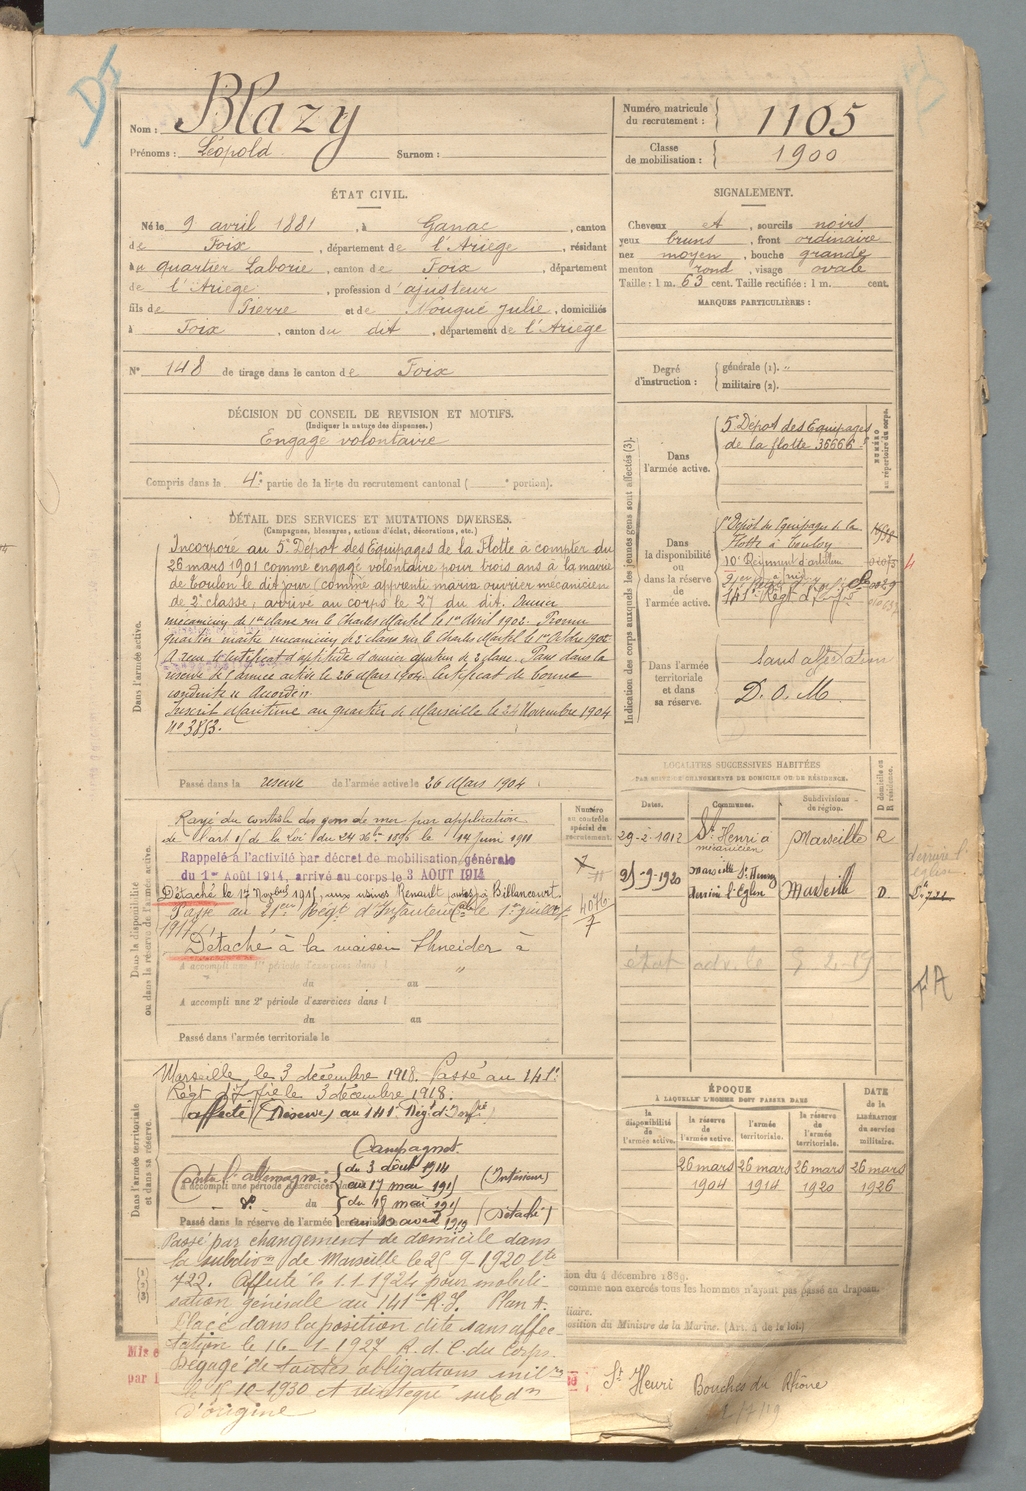 Nom : Blazy
Prénoms : Léopold Surnom :
Numéro matricule du recrutement : 1105
Classe de mobilisation : 1900
ÉTAT CIVIL.
Né le 9 avril 1881, à Ganac, canton
de Foix, département de l'Ariège, résidant
au quartier Laborie, canton de Foix, département
de l'Ariège, profession d'ajusteur
fils de Pierre et de Nougué Julie, domiciliés
à Foix, canton du dit, département de l'Ariège
N° 148 de tirage dans le canton de Foix
SIGNALEMENT.
Cheveux et, sourcils noirs
yeux bruns, front ordinaire
nez moyen, bouche grande
menton rond, visage ovale
Taille : 1 m. 63 cent. Taille rectifiée : 1 m. cent.
MARQUES PARTICULIÈRES :
Degré d'instruction : générale (1). "
militaire (2).
DÉCISION DU CONSEIL DE REVISION ET MOTIFS.
(Indiquer la nature des dispenses.)
Engagé volontaire
Compris dans la 4e partie de la liste du recrutement cantonal ( e portion).
DÉTAIL DES SERVICES ET MUTATIONS DIVERSES.
(Campagnes, blessures, actions d'éclat, décorations, etc.)
Dans l'armée active.
Incorporé au 5e Dépot des Equipages de la Flotte à compter du
26 mars 1901 comme engagé volontaire pour trois ans à la mairie
de Toulon le dit jour (comme apprenti marin ouvrier mécanicien
de 2e classe, arrivé au corps le 27 du dit. Ouvrier
mécanicien de 1re classe sur le Charles Martel le 1er Avril 1902. Promu
quartier maître mécanicien de 2e classe sur le Charles Martel le 1er Octbre 1902
A reçu le certificat d'aptitude d'ouvrier de 2e classe. Passé dans la
réserve de l'armée active le 26 Mars 1904. Certificat de bonne
conduite "Accordé"
Inscrit Maritime au quartier de Marseille le 24 Novembre 1904
N° 3853.
Passé dans la réserve de l'armée active le 26 Mars 1904
Indication des corps auxquels les jeunes gens sont affectés (3).
NUMÉRO au répertoire du corps.
Dans l'armée active.
5e Dépot des Equipages
de la flotte 36666
Dans la disponibilité ou dans la réserve de l'armée active.
5e Dépôt des Equipages de la
Flotte à Toulon
10e Régiment d'artillerie
141e Régt d'Infie
Dans l'armée territoriale et dans sa réserve.
Sans affectation
D. O. M.
Dans la disponibilité ou dans la réserve de l'armée active.
Numéro au contrôle spécial du recrutement.
Rayé du contrôle des gens de mer par application
de l'art 15 de la Loi du 24 Xbre 1896 le 14 Juin 1911
Rappelé à l'activité par décret de mobilisation générale
du 1er Août 1914, arrivé au corps le 3 AOUT 1914
Détaché le 17 Novbre 1915, aux usines Renault (autos) à Billancourt
Passé au 21eme Régt d'Infanterie Cale le 1er juillet
1917.
Détaché à la maison Shneider à
A accompli une 1re période d'exercices dans l
du au
A accompli une 2e période d'exercices dans l
du au
Passé dans l'armée territoriale le
LOCALITÉS SUCCESSIVES HABITÉES
PAR SUITE DE CHANGEMENTS DE DOMICILE OU DE RÉSIDENCE.
Dates. Communes. Subdivisions de région. D domicile ou R résidence.
29-2-1912 St Henri à mécanicien Marseille R
25-9-1920 Marseille St Henry derrière l'Eglise Marseille D.
état adv. le
Dans l'armée territoriale et dans sa réserve.
Marseille, le 3 décembre 1918. Passé au 141e
Régt d'Infie le 3 décembre 1918.
(affecté (Réserve) au 141e Régt d'Infrie)
Campagnes.
Contre l'allemagne { du 3 août 1914
au 17 mai 191 (Intérieur)
d° { du 18 mai 191
au 10 avril 1919 (Détaché)
Passé dans la réserve de l'armée territoriale
Passé par changement de domicile dans
la subdivon de Marseille le 25-9-1920 Lte
722. Affecté le 1.1.1924 pour mobili-
sation générale au 141e R.I. Plan A.
Placé dans la position dite sans affec-
tation le 16-1-1927 R.d.C. du Corps.
Dégagé de toutes obligations milres
le 15-10-1930 et réintégré subdn
d'origine
ÉPOQUE
À LAQUELLE L'HOMME DOIT PASSER DANS
la disponibilité de l'armée active. la réserve de l'armée active. l'armée territoriale. la réserve de l'armée territoriale.
DATE de la LIBÉRATION du service militaire.
26 mars 1904 26 mars 1914 26 mars 1920 26 mars 1926
tion du 4 décembre 1889.
comme non exercés tous les hommes n'ayant pas passé au drapeau
position du Ministre de la Marine. (Art. 4 de la loi)
St Henri Bouches du Rhône